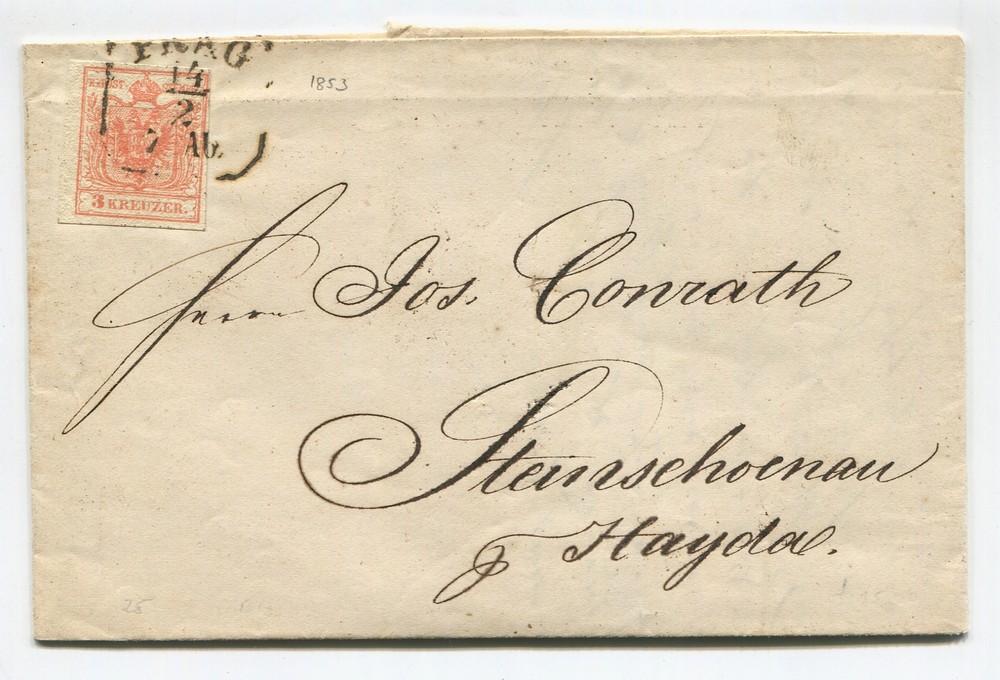 PRAG
14
2
7 Ab.
1853
3 KREUZER.
Herrn Jos. Conrath
Steinschoenau
Hayda.
25